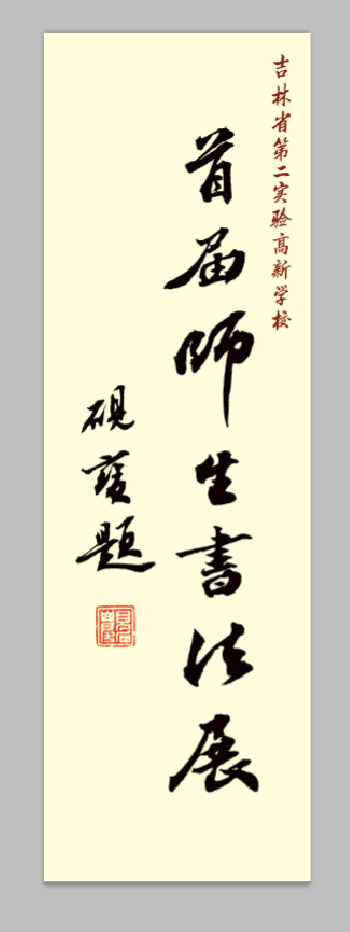 吉林省第二实验高新学校
首届师生書法展
砚寳题